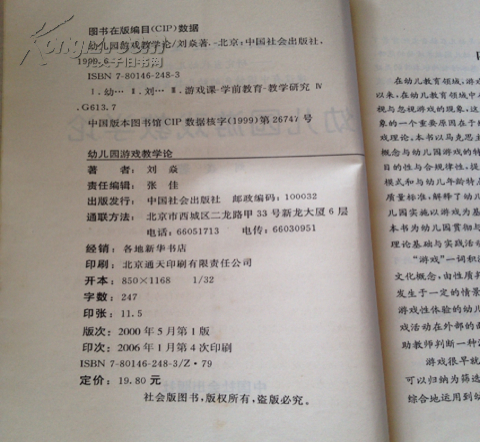 图书在版编目(CIP)数据
幼儿园游戏教学论/刘焱著.-北京:中国社会出版社,
1999.6
ISBN 7-80146-248-3
Ⅰ.幼… Ⅱ.刘… Ⅲ.游戏课-学前教育-教学研究 Ⅳ
.G613.7
中国版本图书馆 CIP 数据核字(1999)第 26747 号
幼儿园游戏教学论
著 者:刘 焱
责任编辑:张 佳
出版发行:中国社会出版社 邮政编码:100032
通联方法:北京市西城区二龙路甲 33 号新龙大厦 6 层
电话:66051713 电传:66030951
经销:各地新华书店
印刷:北京通天印刷有限责任公司
开本:850×1168 1/32
字数:247
印张:11.5
版次:2000 年 5 月第 1 版
印次:2006 年 1 月第 4 次印刷
ISBN 7-80146-248-3/Z·79
定价:19.80 元
社会版图书,版权所有,盗版必究。
在幼儿教育领域,游戏
以来,在幼儿教育领域中存
视与忽视游戏的现象,这
象的一个重要原因在于
戏理论,本书以马克思主
概念与幼儿园游戏的特
目的性与合规律性,提
模式和与年龄特点
质量标准,解释了幼儿
园实施以游戏为基
本书为幼儿园贯彻与
理论基础与实践活动
“游戏”一词积淀
文化概念,由性质判
发生于一定的情景
游戏性体验的幼儿
戏活动在外部的由
助教师判断一种活
游戏很早就
可以归纳为筛选
综合地运用到幼